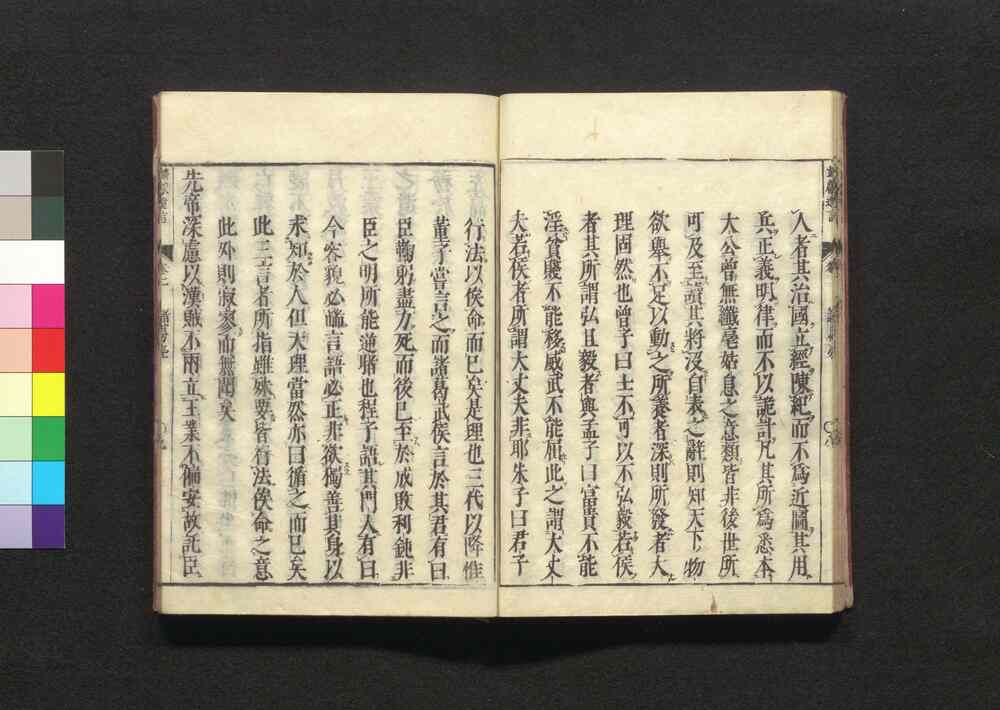 人者其治國立經陳紀而不爲近圖其用
兵正義明律而不以詭計凡其所爲悉本
大公曾無纖毫姑息之意類皆非後世所
可及至讀其將沒自表之辭則知天下物
欲舉不足以動之所養者深則所發者大
理固然也曾子曰士不可以不弘毅若侯
者其所謂弘且毅者與孟子曰富貴不能
淫貧賤不能移威武不能屈此之謂大丈
夫若侯者所謂大丈夫非耶朱子曰君子
行法以俟命而已矣是理也三代以降惟
董子嘗言之而諸葛武侯言於其君有曰
臣鞠躬盡力死而後已至於成敗利鈍非
臣之明所能逆睹也程子語其門人有曰
今容貌必端言語必正非欲獨善其身以
求知於人但天理當然亦曰循之而已矣
此三言者所指雖殊要皆行法俟命之意
此外則寂寥而無聞矣
先帝深慮以漢賊不兩立王業不偏安故託臣